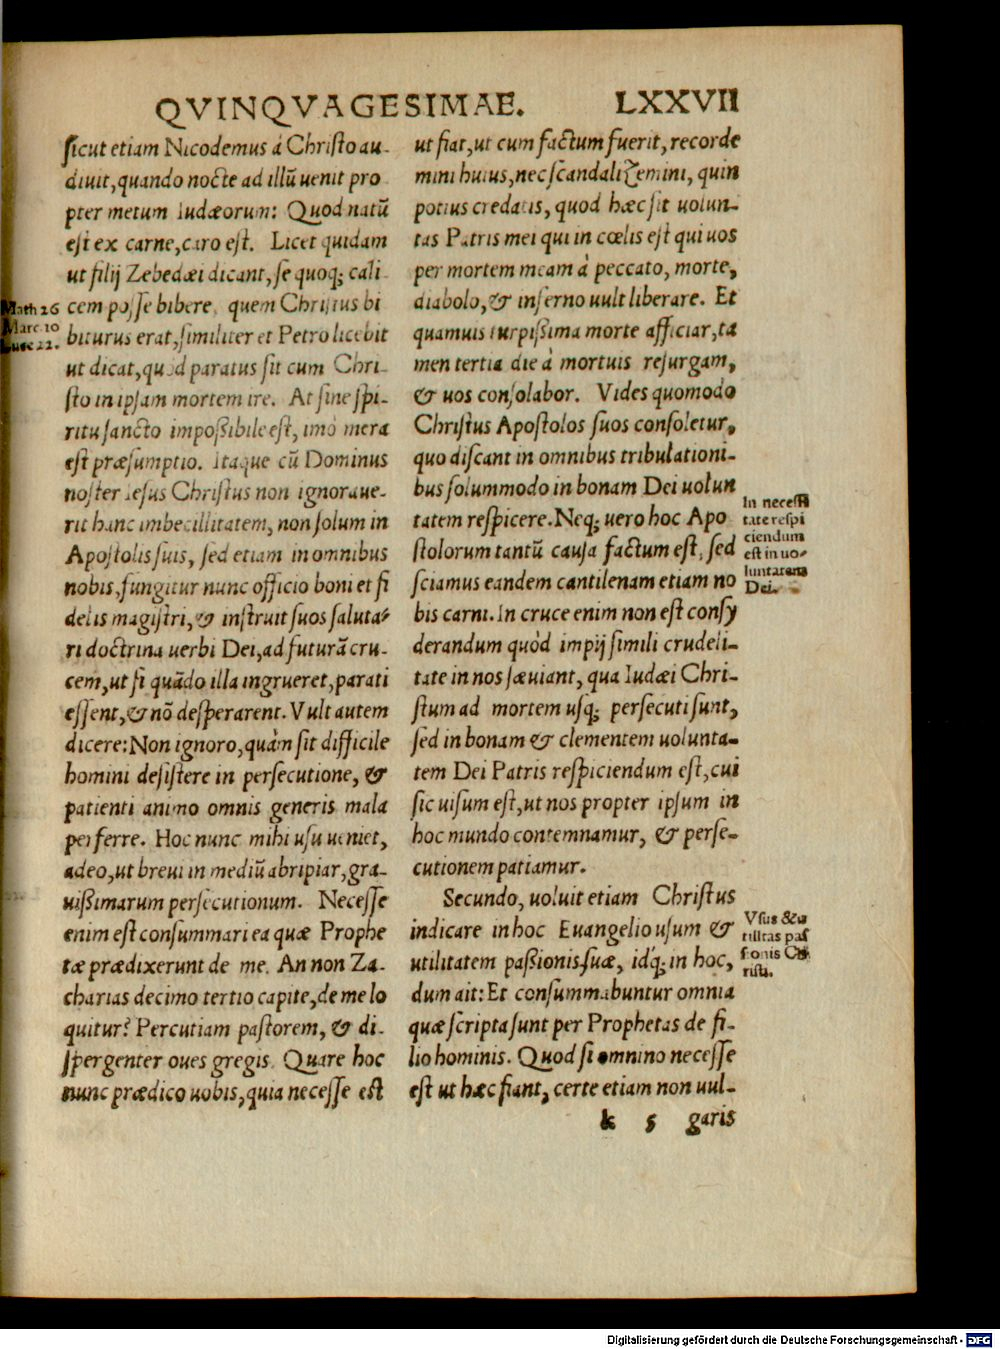 QVINQVAGESIMAE. LXXVII
sicut etiam Nicodemus á Christo au-
diuit, quando nocte ad illū uenit pro
pter metum Iudæorum: Quod natū
est ex carne, caro est. Licet quidam
ut filij Zebedæi dicant, se quoq; cali
cem posse bibere, quem Christus bi
biturus erat, similiter et Petro licebit
ut dicat, quod paratus sit cum Chri-
sto in ipsam mortem ire. At sine spi-
ritu sancto impoßibile est, imò mera
est præsumptio. Itaque cū Dominus
noster Iesus Christus non ignoraue-
rit hanc imbecillitatem, non solum in
Apostolis suis, sed etiam in omnibus
nobis, fungitur nunc officio boni et fi
delis magistri, & instruit suos saluta-
ri doctrina uerbi Dei, ad futurā cru-
cem, ut si quādo illa ingrueret, parati
essent, & nō desperarent. Vult autem
dicere: Non ignoro, quàm sit difficile
homini desistere in persecutione, &
patienti animo omnis generis mala
perferre. Hoc nunc mihi usu ueniet,
adeo, ut breui in mediū abripiar, gra-
uißimarum persecutionum. Necesse
enim est consummari ea quæ Prophe
tæ prædixerunt de me. An non Za-
charias decimo tertio capite, de me lo
quitur? Percutiam pastorem, & di-
spergentur oues gregis. Quare hoc
nunc prædico uobis, quia necesse est
Math 26
Marc 10
Luc 22.
ut fiat, ut cum factum fuerit, recorde
mini huius, nec scandalizemini, quin
potius credatis, quod hæc sit uolun-
tas Patris mei qui in cœlis est qui uos
per mortem meam à peccato, morte,
diabolo, & inferno uult liberare. Et
quamuis turpißima morte afficiar, ta
men tertia die à mortuis resurgam,
& uos consolabor. Vides quomodo
Christus Apostolos suos consoletur,
quo discant in omnibus tribulationi-
bus solummodo in bonam Dei uolun
tatem respicere. Neq; uero hoc Apo
stolorum tantū causa factum est, sed
sciamus eandem cantilenam etiam no
bis cani. In cruce enim non est consy
derandum quòd impij simili crudeli-
tate in nos sæuiant, qua Iudæi Chri-
stum ad mortem usq; persecuti sunt,
sed in bonam & clementem uolunta-
tem Dei Patris respiciendum est, cui
sic uisum est, ut nos propter ipsum in
hoc mundo contemnamur, & perse-
cutionem patiamur.
Secundo, uoluit etiam Christus
indicare in hoc Euangelio usum &
utilitatem paßionis suæ, idq; in hoc,
dum ait: Et consummabuntur omnia
quæ scripta sunt per Prophetas de fi-
lio hominis. Quod si omnino necesse
est ut hæc fiant, certe etiam non uul-
In necessi
tate respi
ciendum
est in uo-
luntatem
Dei.
Vsus & u
tilitas pas
sionis Ch
risti.
k 5 garis
Digitalisierung gefördert durch die Deutsche Forschungsgemeinschaft - DFG